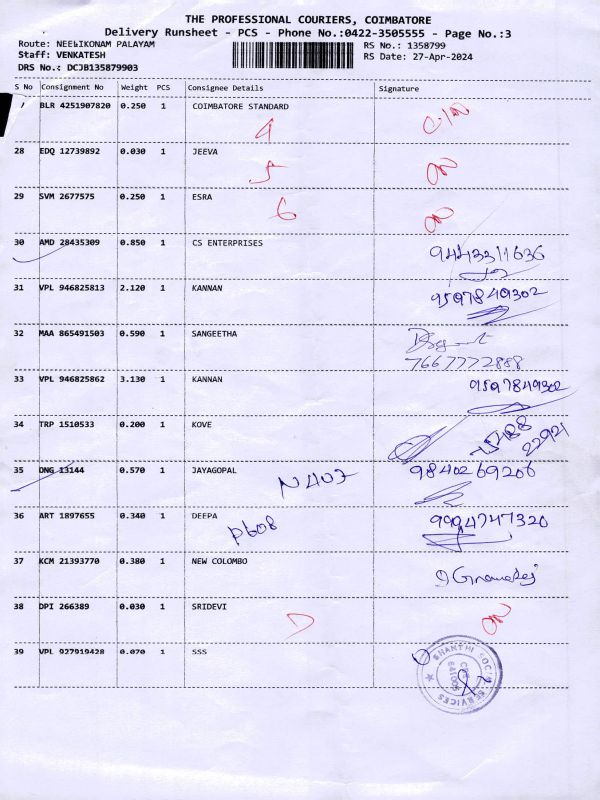 THE PROFESSIONAL COURIERS, COIMBATORE
Delivery Runsheet - PCS - Phone No.:0422-3505555 - Page No.:3
Route: NEELIKONAM PALAYAM RS No.: 1358799
Staff: VENKATESH RS Date: 27-Apr-2024
DRS No.: DCJB135879903
S No Consignment No Weight PCS Consignee Details Signature
BLR 4251907820 0.250 1 COIMBATORE STANDARD
4
28 EDQ 12739892 0.030 1 JEEVA
5
29 SVM 2677575 0.250 1 ESRA
6
30 AMD 28435309 0.850 1 CS ENTERPRISES 9443311636
31 VPL 946825813 2.120 1 KANNAN 9597849302
32 MAA 865491503 0.590 1 SANGEETHA
7667772888
33 VPL 946825862 3.130 1 KANNAN 9597849302
34 TRP 1510533 0.200 1 KOVE
22921
35 DNG 13144 0.570 1 JAYAGOPAL 9840269206
N407
36 ART 1897655 0.340 1 DEEPA 9994747320
P608
37 KCM 21393770 0.380 1 NEW COLOMBO
38 DPI 266389 0.030 1 SRIDEVI
39 VPL 927919428 0.070 1 SSS
SHANTHI SOCIAL SERVICES
CBE
641005